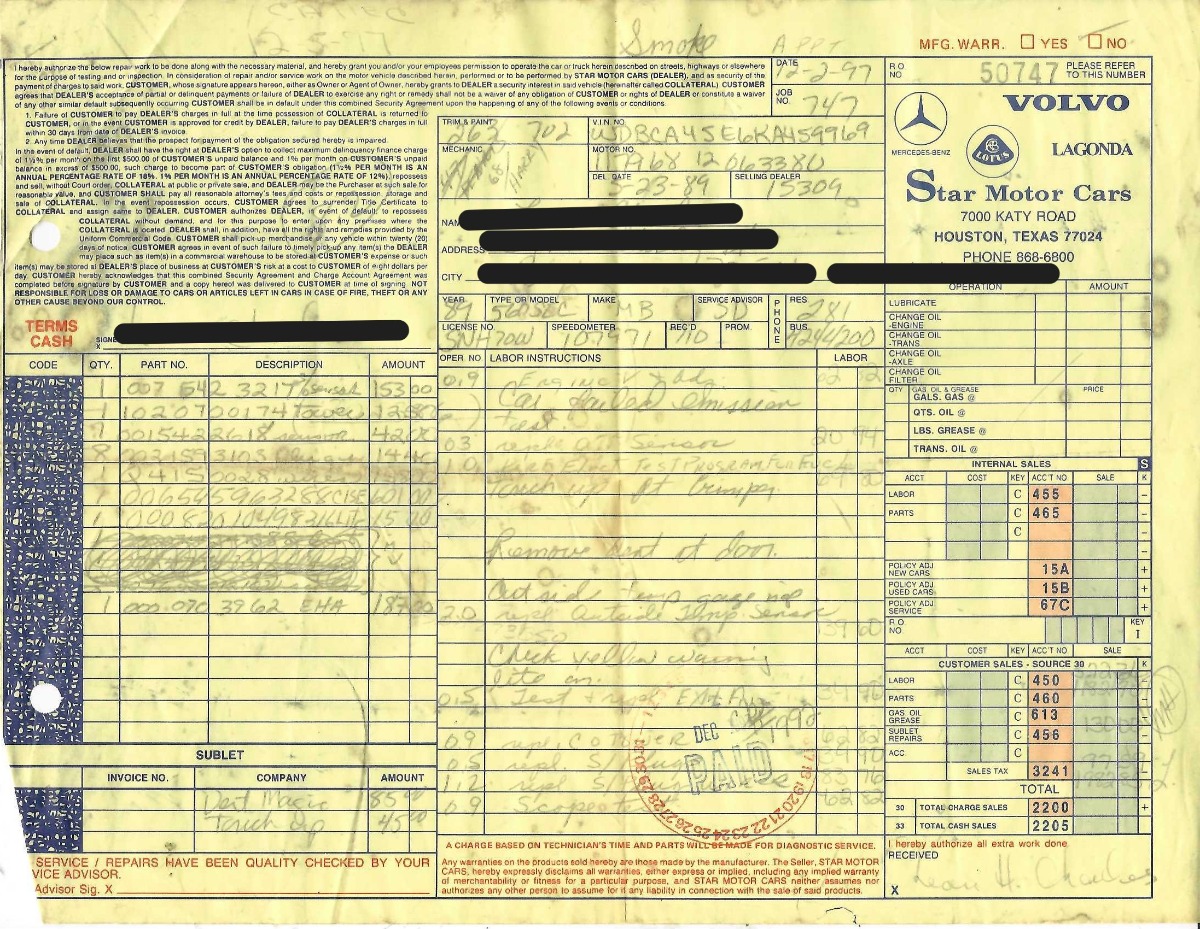 12-5-97
Smoke APPT
MFG. WARR. ☐ YES ☐ NO
I hereby authorize the below repair work to be done along with the necessary material, and hereby grant you and/or your employees permission to operate the car or truck herein described on streets, highways or elsewhere
for the purpose of testing and/or inspection. In consideration of repair and/or service work on the motor vehicle described herein, performed or to be performed by STAR MOTOR CARS (DEALER), and as security of the
payment of charges to said work, CUSTOMER, whose signature appears herein, either as Owner or Agent of Owner, hereby grants to DEALER a security interest in said vehicle (hereinafter called COLLATERAL). CUSTOMER
agrees that DEALER'S acceptance of partial or delinquent payments or failure of DEALER to exercise any right or remedy shall not be a waiver of any obligation of CUSTOMER or rights of DEALER or constitute a waiver
of any other similar default subsequently occurring. CUSTOMER shall be in default under this combined Security Agreement upon the happening of any of the following events or conditions.
1. Failure of CUSTOMER to pay DEALER'S charges in full at the time possession of COLLATERAL is returned to
CUSTOMER, or in the event CUSTOMER is approved for credit by DEALER, failure to pay DEALER'S charges in full
within 30 days from date of DEALER'S invoice.
2. Any time DEALER believes that the prospect for payment of the obligation secured hereby is impaired.
In the event of default, DEALER shall have the right at option to collect maximum delinquency finance charge
of 1½% per month on the first $500.00 of CUSTOMER'S unpaid balance and 1% per month on CUSTOMER'S unpaid
balance in excess of $500.00, such charge to become part of CUSTOMER'S obligation (1½% PER MONTH IS AN
ANNUAL PERCENTAGE RATE OF 18%. 1% PER MONTH IS AN ANNUAL PERCENTAGE RATE OF 12%), repossess
and sell, without Court order, COLLATERAL at public or private sale, and DEALER may be Purchaser at such sale for
reasonable value, and CUSTOMER SHALL pay all reasonable attorney's fees and costs or repossession, storage and
sale of COLLATERAL. In the event repossession occurs, CUSTOMER agrees to surrender Title Certificate to
COLLATERAL and assign same to DEALER. CUSTOMER authorizes DEALER, in event of default, to repossess
COLLATERAL without demand, and for this purpose to enter upon any premises where the
COLLATERAL is located. DEALER shall, in addition, have all the rights and remedies provided by the
Uniform Commercial Code. CUSTOMER shall pick-up merchandise or any vehicle within twenty (20)
days of notice. CUSTOMER agrees in event of such failure to timely pick-up any item(s) the DEALER
may place such as item(s) in a commercial warehouse to be stored at CUSTOMER'S expense or such
item(s) may be stored at DEALER'S place of business at CUSTOMER'S risk at a cost to CUSTOMER of eight dollars per
day. CUSTOMER hereby acknowledges that this combined Security Agreement and Charge Account Agreement was
completed before signature by CUSTOMER and a copy hereof was delivered to CUSTOMER at time of signing. NOT
RESPONSIBLE FOR LOSS OR DAMAGE TO CARS OR ARTICLES LEFT IN CARS IN CASE OF FIRE, THEFT OR ANY
OTHER CAUSE BEYOND OUR CONTROL.
TERMS
CASH
X
DATE 12-2-97
JOB NO. 747
TRIM & PAINT 262 702
V.I.N. NO. WDBCA45E6KA459969
MECHANIC
MOTOR NO. 117A68 12 063380
DEL. DATE 5-23-89
SELLING DEALER 15309
ADDRESS
CITY
YEAR 89
TYPE OR MODEL 560SEC
MAKE MB
SERVICE ADVISOR JD
PHONE
RES. 281
BUS. 7244200
LICENSE NO. SNH70W
SPEEDOMETER 107971
REC'D AD
PROM.
R.O NO 50747 PLEASE REFER TO THIS NUMBER
MERCEDES-BENZ
VOLVO
LOTUS
LAGONDA
Star Motor Cars
7000 KATY ROAD
HOUSTON, TEXAS 77024
PHONE 868-6800
OPERATION AMOUNT
LUBRICATE
CHANGE OIL -ENGINE
CHANGE OIL -TRANS.
CHANGE OIL -AXLE
CHANGE OIL FILTER
QTY GAS, OIL & GREASE PRICE
GALS. GAS @
QTS. OIL @
LBS. GREASE @
TRANS. OIL @
CODE QTY. PART NO. DESCRIPTION AMOUNT
1 007 542 3217 153 00
1 102 070 0174
1 42 08
8
1
1 601 00
1 15 20
1 000 070 3962 EHA 187 00
SUBLET
INVOICE NO. COMPANY AMOUNT
Dent Magic 85 00
Touch Up 45 00
SERVICE / REPAIRS HAVE BEEN QUALITY CHECKED BY YOUR
VICE ADVISOR.
Advisor Sig. X
OPER. NO LABOR INSTRUCTIONS LABOR
019 62 82
Car failed emission
test
03 Sensor 20 94
10
Touch up Ft Bumper
Remove dent at door.
Outside temp gage nop
20 repl Outside Temp Sensor 139 60
Check yellow warning
lite on.
0.5 Test
09 62 82
05 repl.
1.2 repl. 83 76
09 Scope 62 82
DEC 1997
PAID
17 18 19 20 21 22 23 24 25 26 27 28 29 30
A CHARGE BASED ON TECHNICIAN'S TIME AND PARTS WILL BE MADE FOR DIAGNOSTIC SERVICE.
Any warranties on the products sold hereby are those made by the manufacturer. The Seller, STAR MOTOR
CARS, hereby expressly disclaims all warranties, either express or implied, including any implied warranty
of merchantability or fitness for a particular purpose, and STAR MOTOR CARS neither assumes nor
authorizes any other person to assume for it any liability in connection with the sale of said products.
INTERNAL SALES S
ACCT COST KEY ACC'T NO SALE K
LABOR C 455 -
PARTS C 465 -
C -
-
POLICY ADJ NEW CARS 15A +
POLICY ADJ USED CARS 15B +
POLICY ADJ SERVICE 67C +
R.O. NO. KEY I
ACCT COST KEY ACC'T NO SALE
CUSTOMER SALES - SOURCE 30 K
LABOR C 450
PARTS C 460
GAS OIL GREASE C 613
SUBLET REPAIRS C 456
ACC. C
SALES TAX 3241
TOTAL
30 TOTAL CHARGE SALES 2200 +
33 TOTAL CASH SALES 2205
I hereby authorize all extra work done.
RECEIVED
X